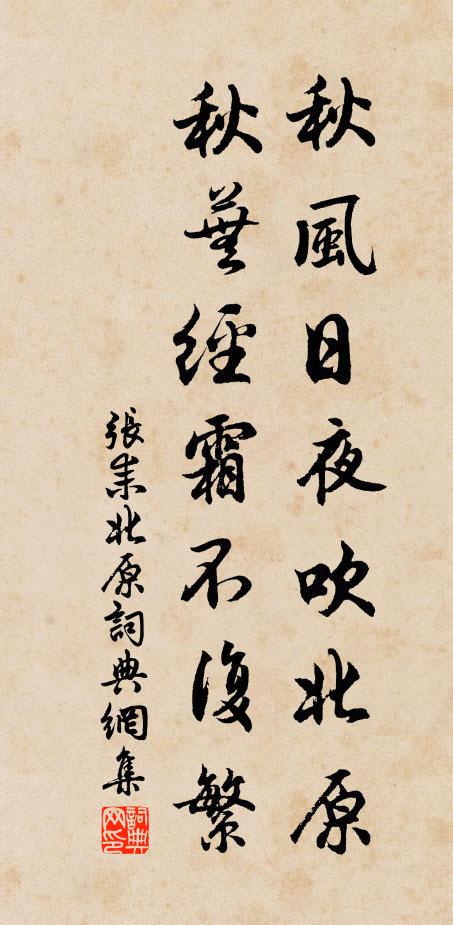 秋風日夜吹北原
秋華經霜不復繁
張耒北原詞典網集
詞典
网印